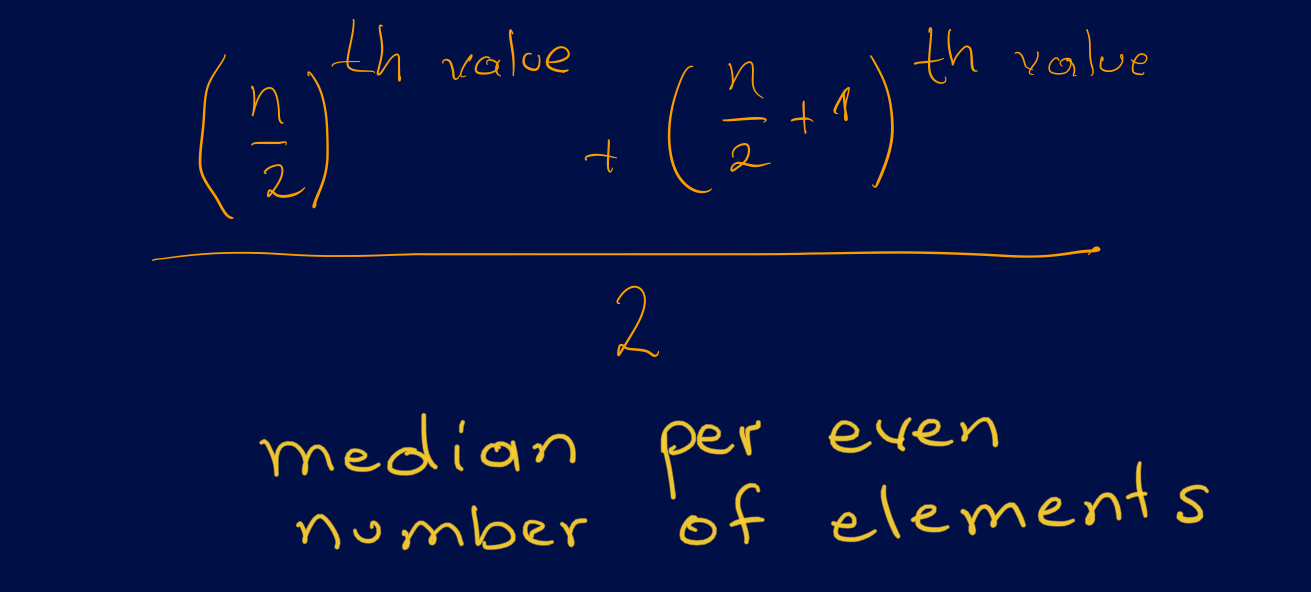 (n/2)^th value + (n/2 + 1)^th value
2
median per even
number of elements